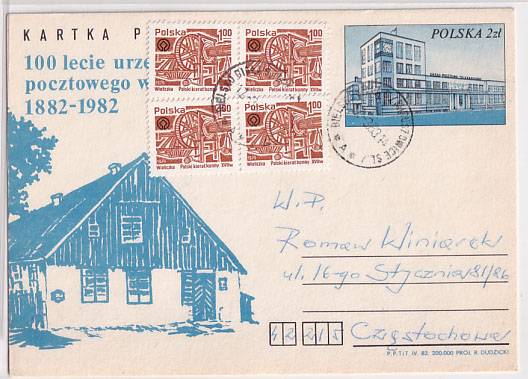 KARTKA P
100 lecie urzę
pocztowego w
1882-1982
Polska 1.00
Wieliczka Polski kierat konny XVIII w.
Polska 1.00
Wieliczka Polski kierat konny XVIII w.
Polska 1.00
Wieliczka Polski kierat konny XVIII w.
Polska 1.00
Wieliczka Polski kierat konny XVIII w.
POLSKA 2zł
W.P.
Roman Winiarek
ul. 16-go Stycznia 81/86
42215 Częstochowa
P.P.T.i T. IV 82. 200.000 PROJ. R. DUDZICKI